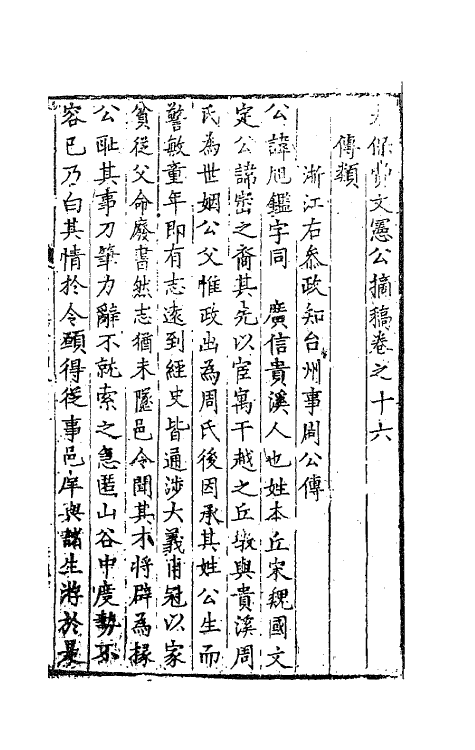 太保費文憲公摘稿卷之十六
傳類
浙江右叅政知台州事周公傳
公諱旭鑑字同　廣信貴溪人也姓本丘宋魏國文
定公諱密之裔其先以宦寓干越之丘墩與貴溪周
氏為世姻公父惟政出為周氏後因承其姓公生而
警敏童年即有志遠到經史皆通涉大義甫冠以家
貧從父命廢書然志猶未隳邑令聞其才將辟為掾
公耻其事刀筆力辭不就索之急匿山谷中度勢不
容已乃白其情於令願得從事邑庠與諸生游於是